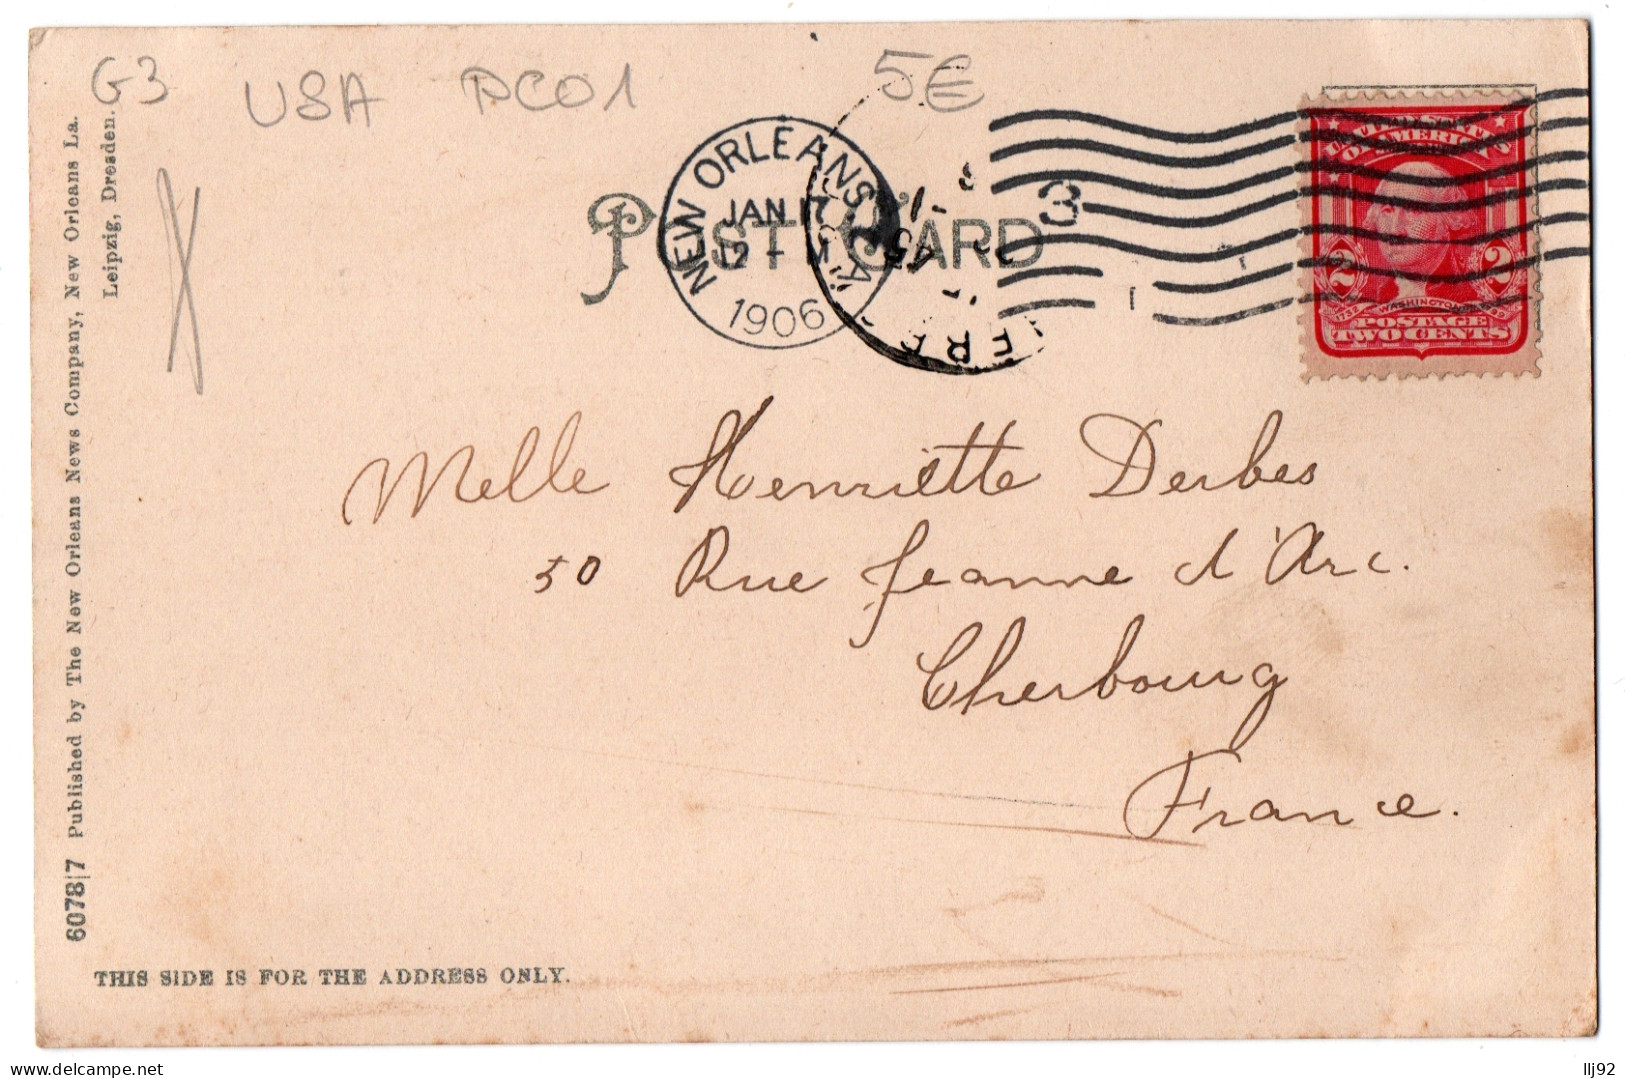 G3 USA PC01 5€
NEW ORLEANS, LA.
JAN
1906
3
POST CARD
UNITED STATES
OF AMERICA
2 2
1732 WASHINGTON 1799
POSTAGE
TWO CENTS
Melle Henriette Derbes
50 Rue Jeanne d'Arc.
Cherbourg
France.
6078|7 Published by The New Orleans News Company, New Orleans La.
Leipzig, Dresden.
THIS SIDE IS FOR THE ADDRESS ONLY.
www.delcampe.net
llj92